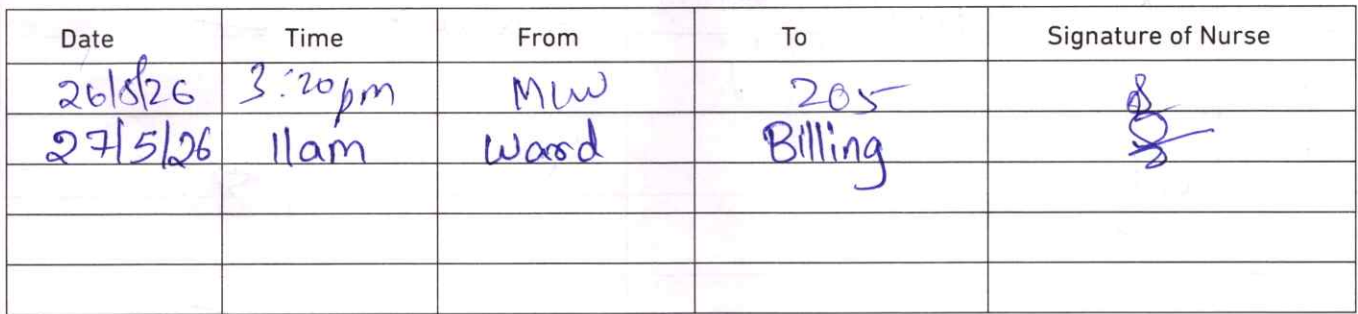 Date Time From To Signature of Nurse
26/5/26 3:20pm MW 205
27/5/26 11am Ward Billing